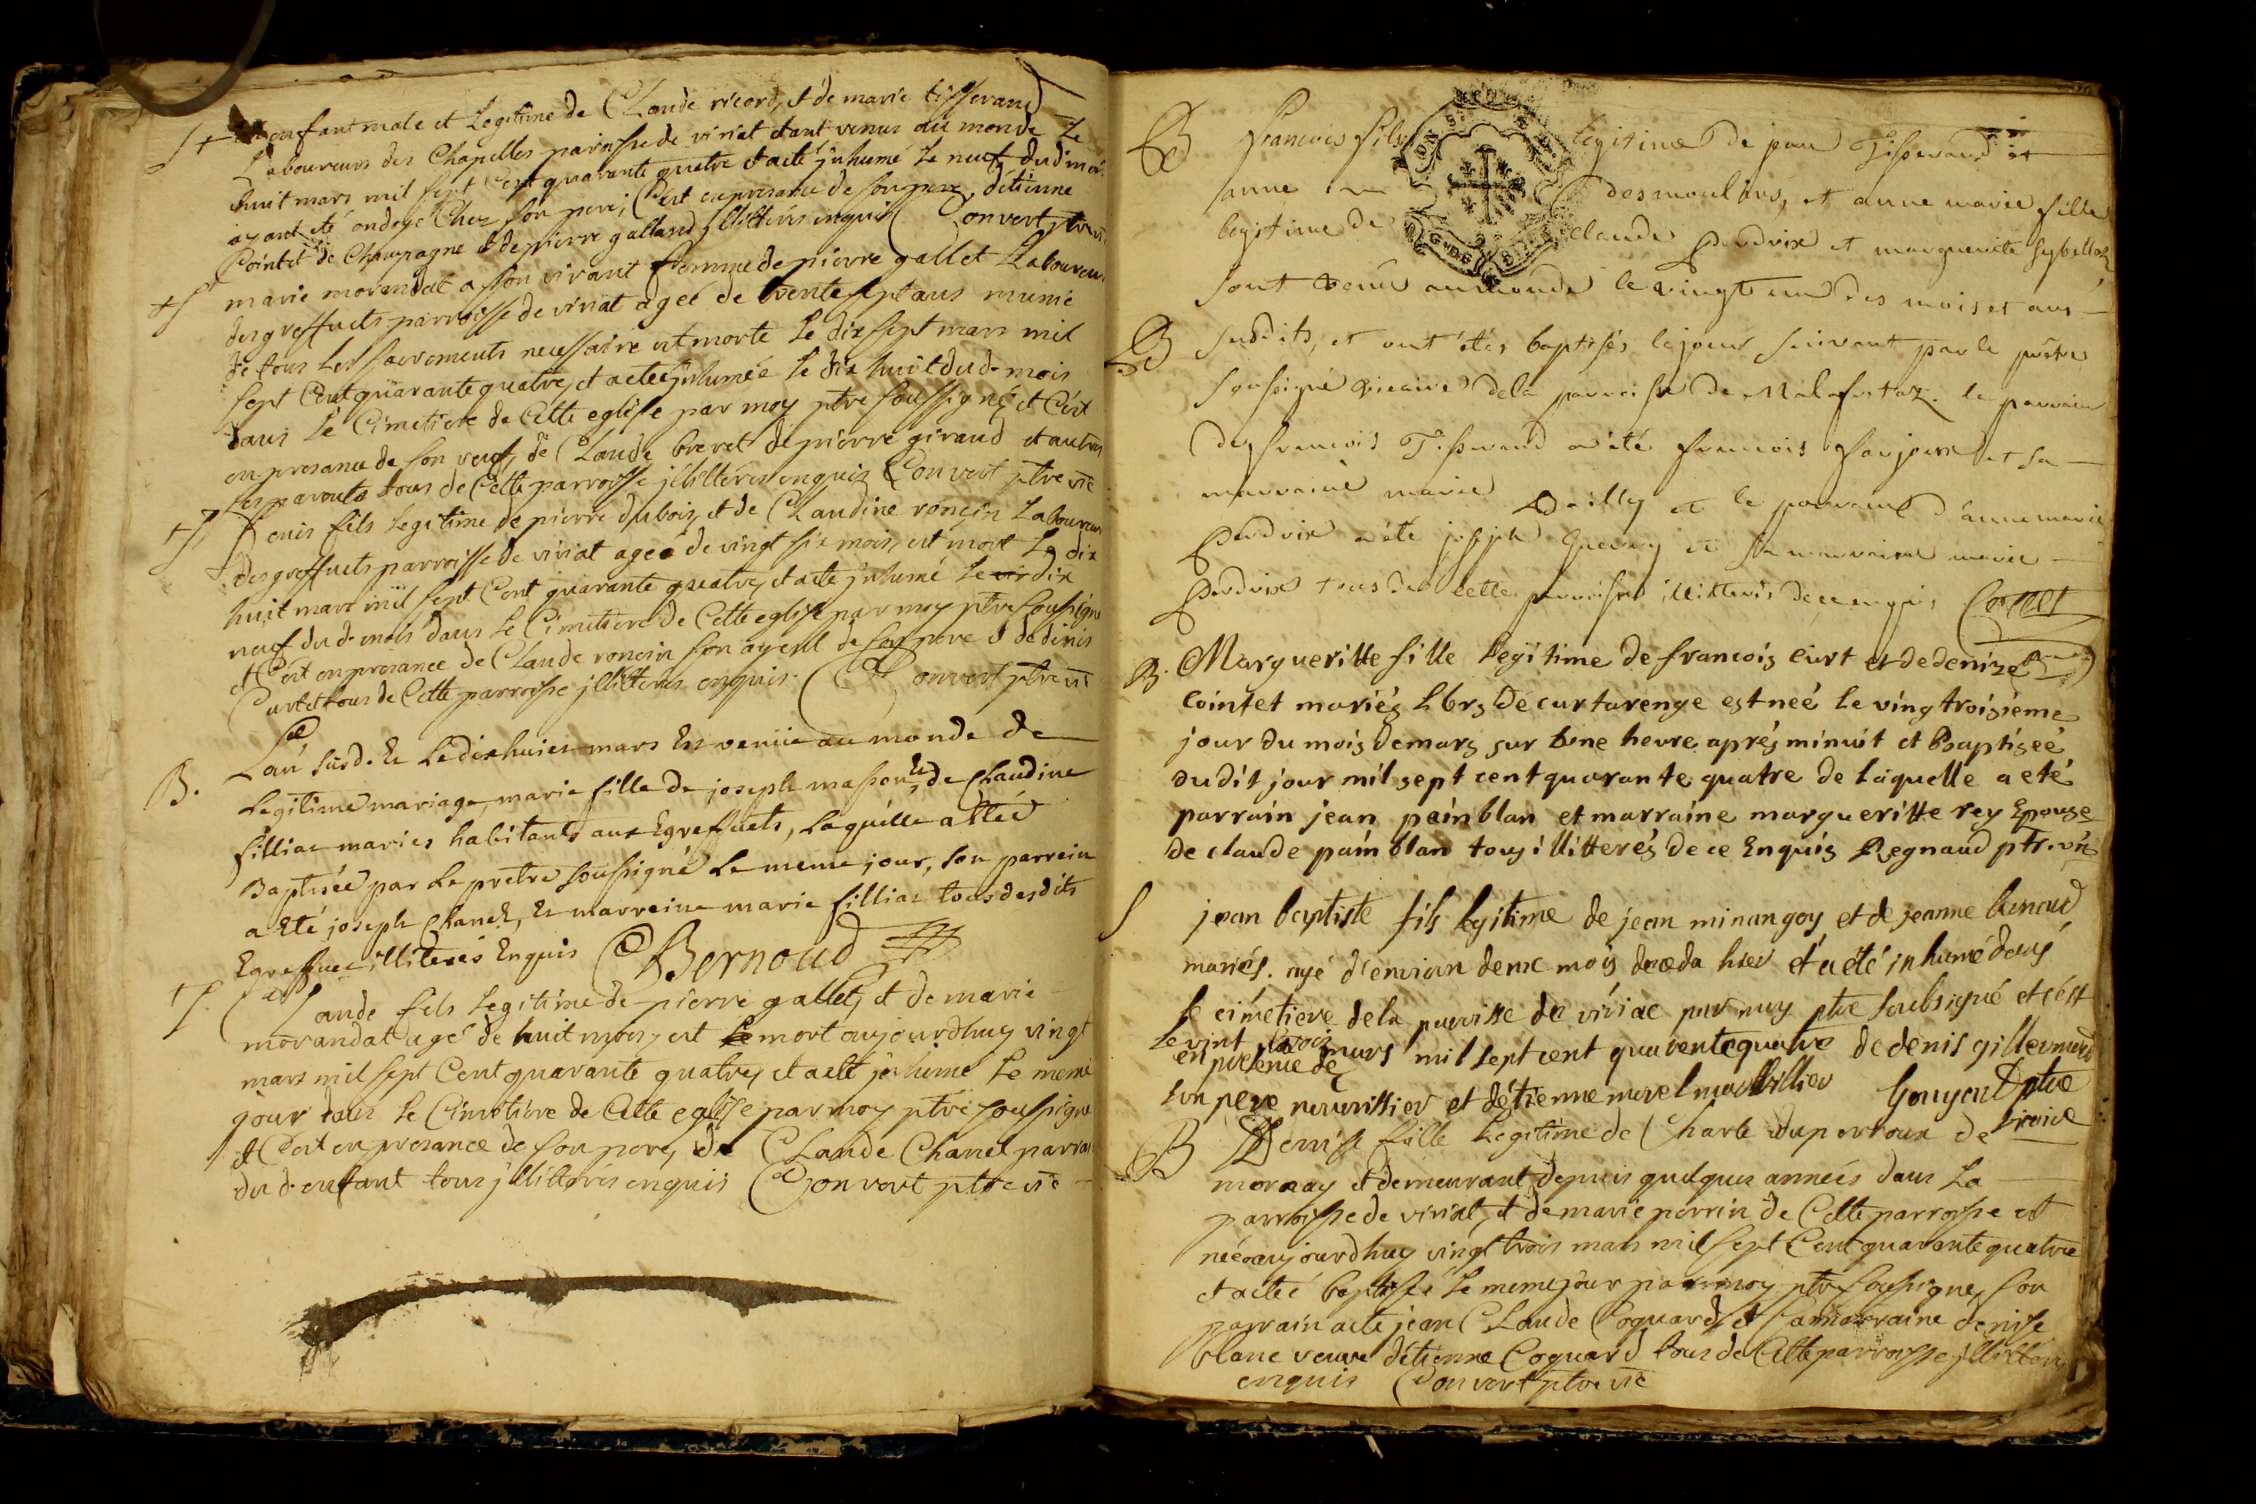 S + enfant male et Legitime de Claude ricord, et de marie tisserand
Laboureurs des Chapelles parroisse de viriat etant venus au monde Le
huit mars mil sept Cent quarante quatre et a eté jnhumé Le neuf dud. moi
ayant eté ondoyé Chez son pere; C'est en presance de son pere, detienne
Cointet de Champagne et de pierre galland jllitterés enquis Convert ptre vic
+ S marie morandat a son vivant femme de pierre gallet Laboureur
des greffuets parroisse de viriat ageé de trente sept ans munie
de tous les sacrements necessaire est morte Le dix sept mars mil
sept Cent quarante quatre, et a eteé jnhumée Le dix huit dud. mois
dans le Cimetiere de Cette eglise par moy ptre soussigné, et C'est
en presance de son veuf, de Claude brevet de pierre giraud et autres
ses parents tous de Cette parroisse jllitterés enquis Convert ptre vic
+ S Denis fils Legitime de pierre dubois, et de Claudine ronçin Laboureurs
des greffuets parroisse de viriat ageé de vingt six mois, est mort Le dix
huit mars mil sept Cent quarante quatre, et a eté jnhumé Le dix
neuf dud. mois dans Le Cimetiere de Cette eglise par moy ptre soussigné
et C'est en presance de Claude roncin son ayeul de son pere et de denis
Curtet tous de Cette parroisse jllitterés enquis. Convert ptre vic
B. L'an susd. Et Le dixhuict mars Est venüe au monde de
Legitime mariage, marie fille de joseph masson, et de Claudine
filliat mariés habitants aux Egreffuets, Laquelle a etée
Baptisée par Le pretre soussigné Le meme jour, son parrein
a Eté joseph Chanel, Et marreine marie filliat tous desdits
Egreffuets illiterés Enquis Bernoud
+ S. Claude fils Legitime de pierre gallet, et de marie
morandat agé de huit mois, est mort aujourdhuy vingt
mars mil sept Cent quarante quatre, et a eté jnhumé Le meme
jour dans Le Cimetiere de Cette eglise par moy ptre soussigné
et C'est en presance de son pere, de Claude Chanel parrain
dud. enfant tous jllitterés enquis Convert ptre vic
B francois fils legitime de jean Tisserand et
anne desmoulins, et anne marie fille
legitime de claude Perdrix et marguerite sybellaz
sont venu au monde le vingt un des mois et ans
B susdits, et ont étés baptisés le jour suivant par le prêtre
soussigné vicaire de la parroisse de Malafretaz. le parrain
de francois Tisserand a été francois Faujour et sa
marraine marie Dailly et le parrain d'anne marie
Perdrix a été joseph Guerry et sa marraine marie
Perdrix tous de cette parroisse illitterés de ce enquis Collet
B. Margueritte fille legitime de francois curt et de denize
Cointet mariés lbrs de curtarenge est neé le ving troisieme
jour du mois de mars sur une heure aprés minuit et Baptiseé
dudit jour mil sept cent quarante quatre de laquelle a eté
parrain jean pain blan et marraine margueritte rey Epouse
de claude pain blan tous illitterés de ce Enquis Regnaud ptr. vic
S jean baptiste fils legitime de jean minangoy et de jeanne benoud
mariés. agé d'environ deux mois deceda hier et a eté inhumé dans
le cimetiere de la paroisse de viriac par moy ptre soubsigné et c'est
le vint trois mars mil sept cent quarente quatre de denis gillermard
en presence de
son pere nourrissier et détienne morel marillier Gouyard ptre
vicaire
B Denise fille Legitime de Charle duportoux de
mornay et demeurant depuis quelques annéés dans La
parroisse de viriat, et de marie perrin de Cette parroisse est
néé aujourdhuy vingt trois mars mil sept Cent quarante quatre
et a eteé baptisé Le meme jour par moy ptre soussigné, son
parrain a eté jean Claude Coquard, et sa marraine denise
blanc veuve détienne Coquard tous de Cette parroisse jllitterés
enquis Convert ptre vic